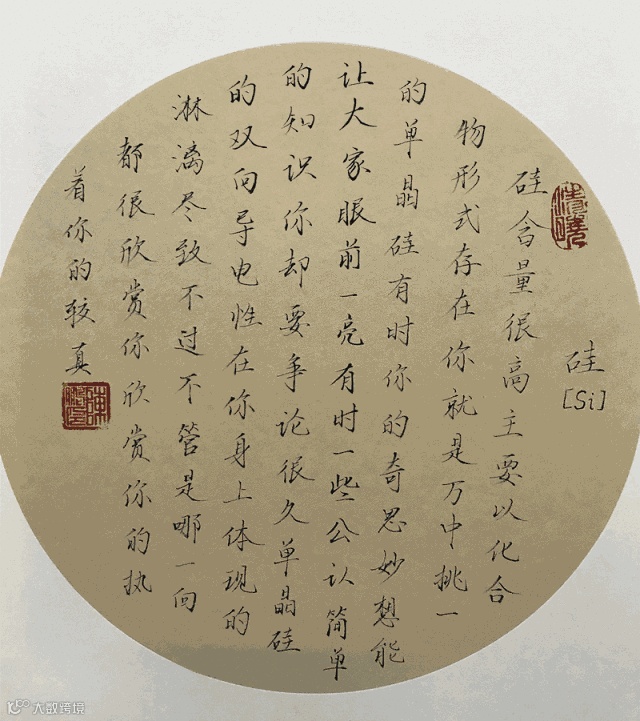 硅
[Si]
清曉
硅含量很高主要以化合
物形式存在你就是万中挑一
的单晶硅有时你的奇思妙想能
让大家眼前一亮有时一些公认简单
的知识你却要争论很久单晶硅
的双向导电性在你身上体现的
淋漓尽致不过不管是哪一向
都很欣赏你欣赏你的执
着你的较真
大数跨境